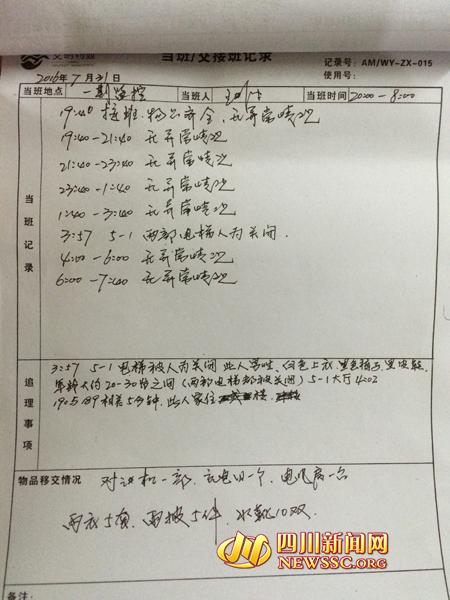 当班/交接班记录
记录号：AM/WY-ZX-015
使用号：
2016年7月31日
当班地点 一期监控 当班人 当班时间 20:00-8:00
当班记录
19:40 接班.物品齐全,无异常情况
19:40-21:40 无异常情况
21:40-23:40 无异常情况
23:40-1:40 无异常情况
1:40-3:40 无异常情况
3:57 5-1 两部电梯人为关闭.
4:00-6:00 无异常情况
6:00-7:40 无异常情况
追理事项
3:57 5-1 电梯被人为关闭 此人男性、白色上衣 黑色裤子 黑皮鞋.
年龄大约20-30岁之间(两部电梯都被关闭) 5-1大厅 4:02
相差5分钟.此人家住 楼.
物品移交情况 对讲机一部.充电器一个,电风扇一台
雨衣5顶,雨披5件,水鞋10双.
四川新闻网
NEWSSC.ORG
备注：